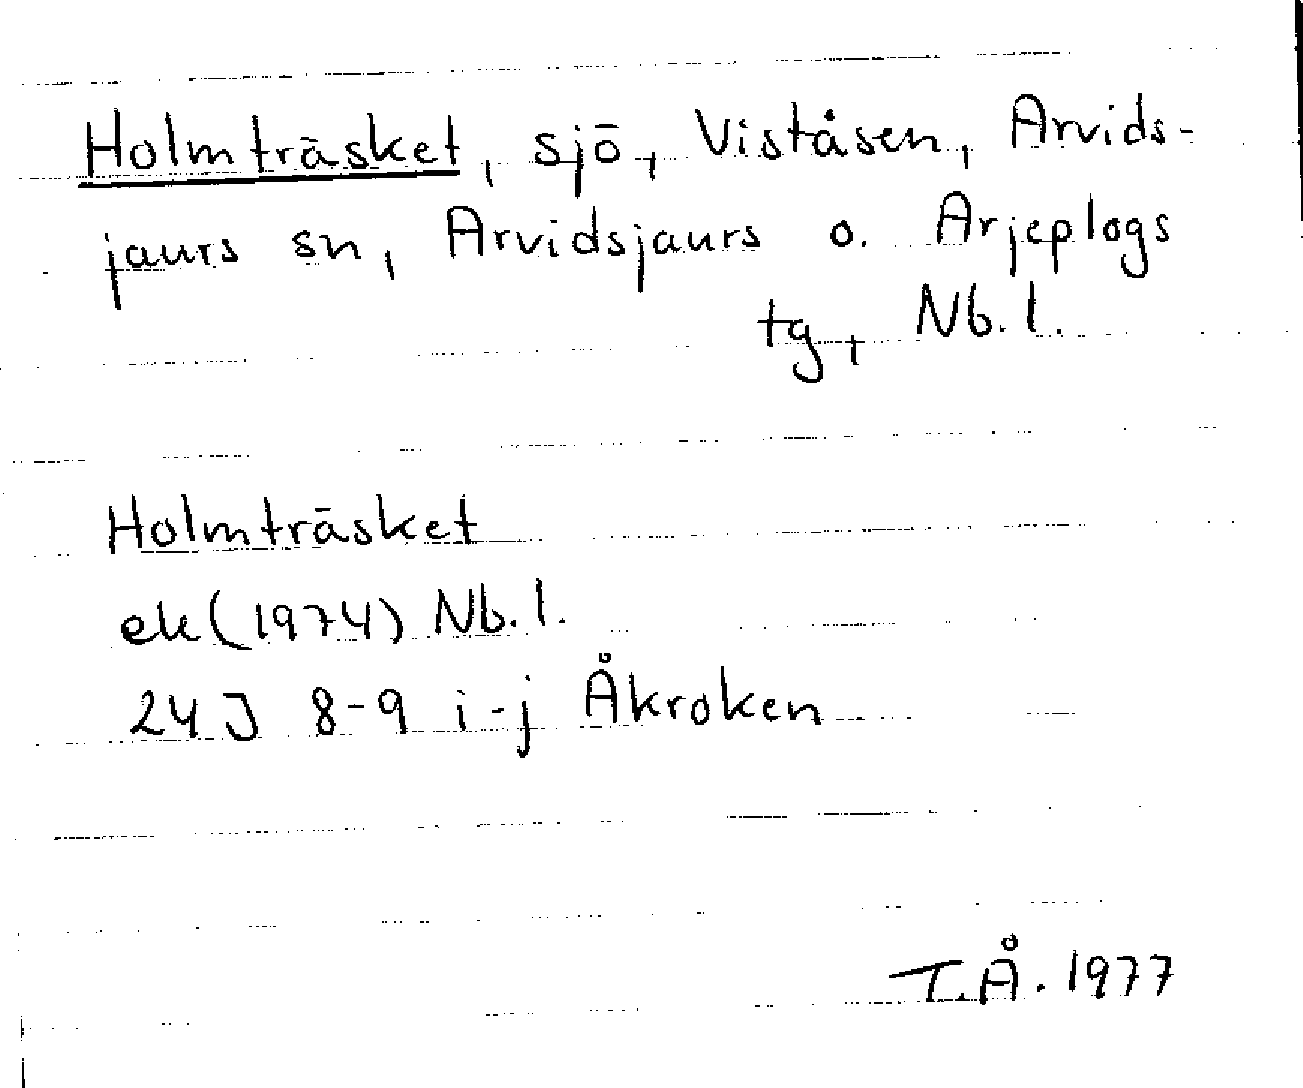 Holmträsket, sjö, Viståsen, Arvids-
jaurs sn, Arvidsjaurs o. Arjeplogs
tg, Nb. l.
Holmträsket
ek (1974) Nb. l.
24J 8-9 i-j Åkroken
T.Å. 1977